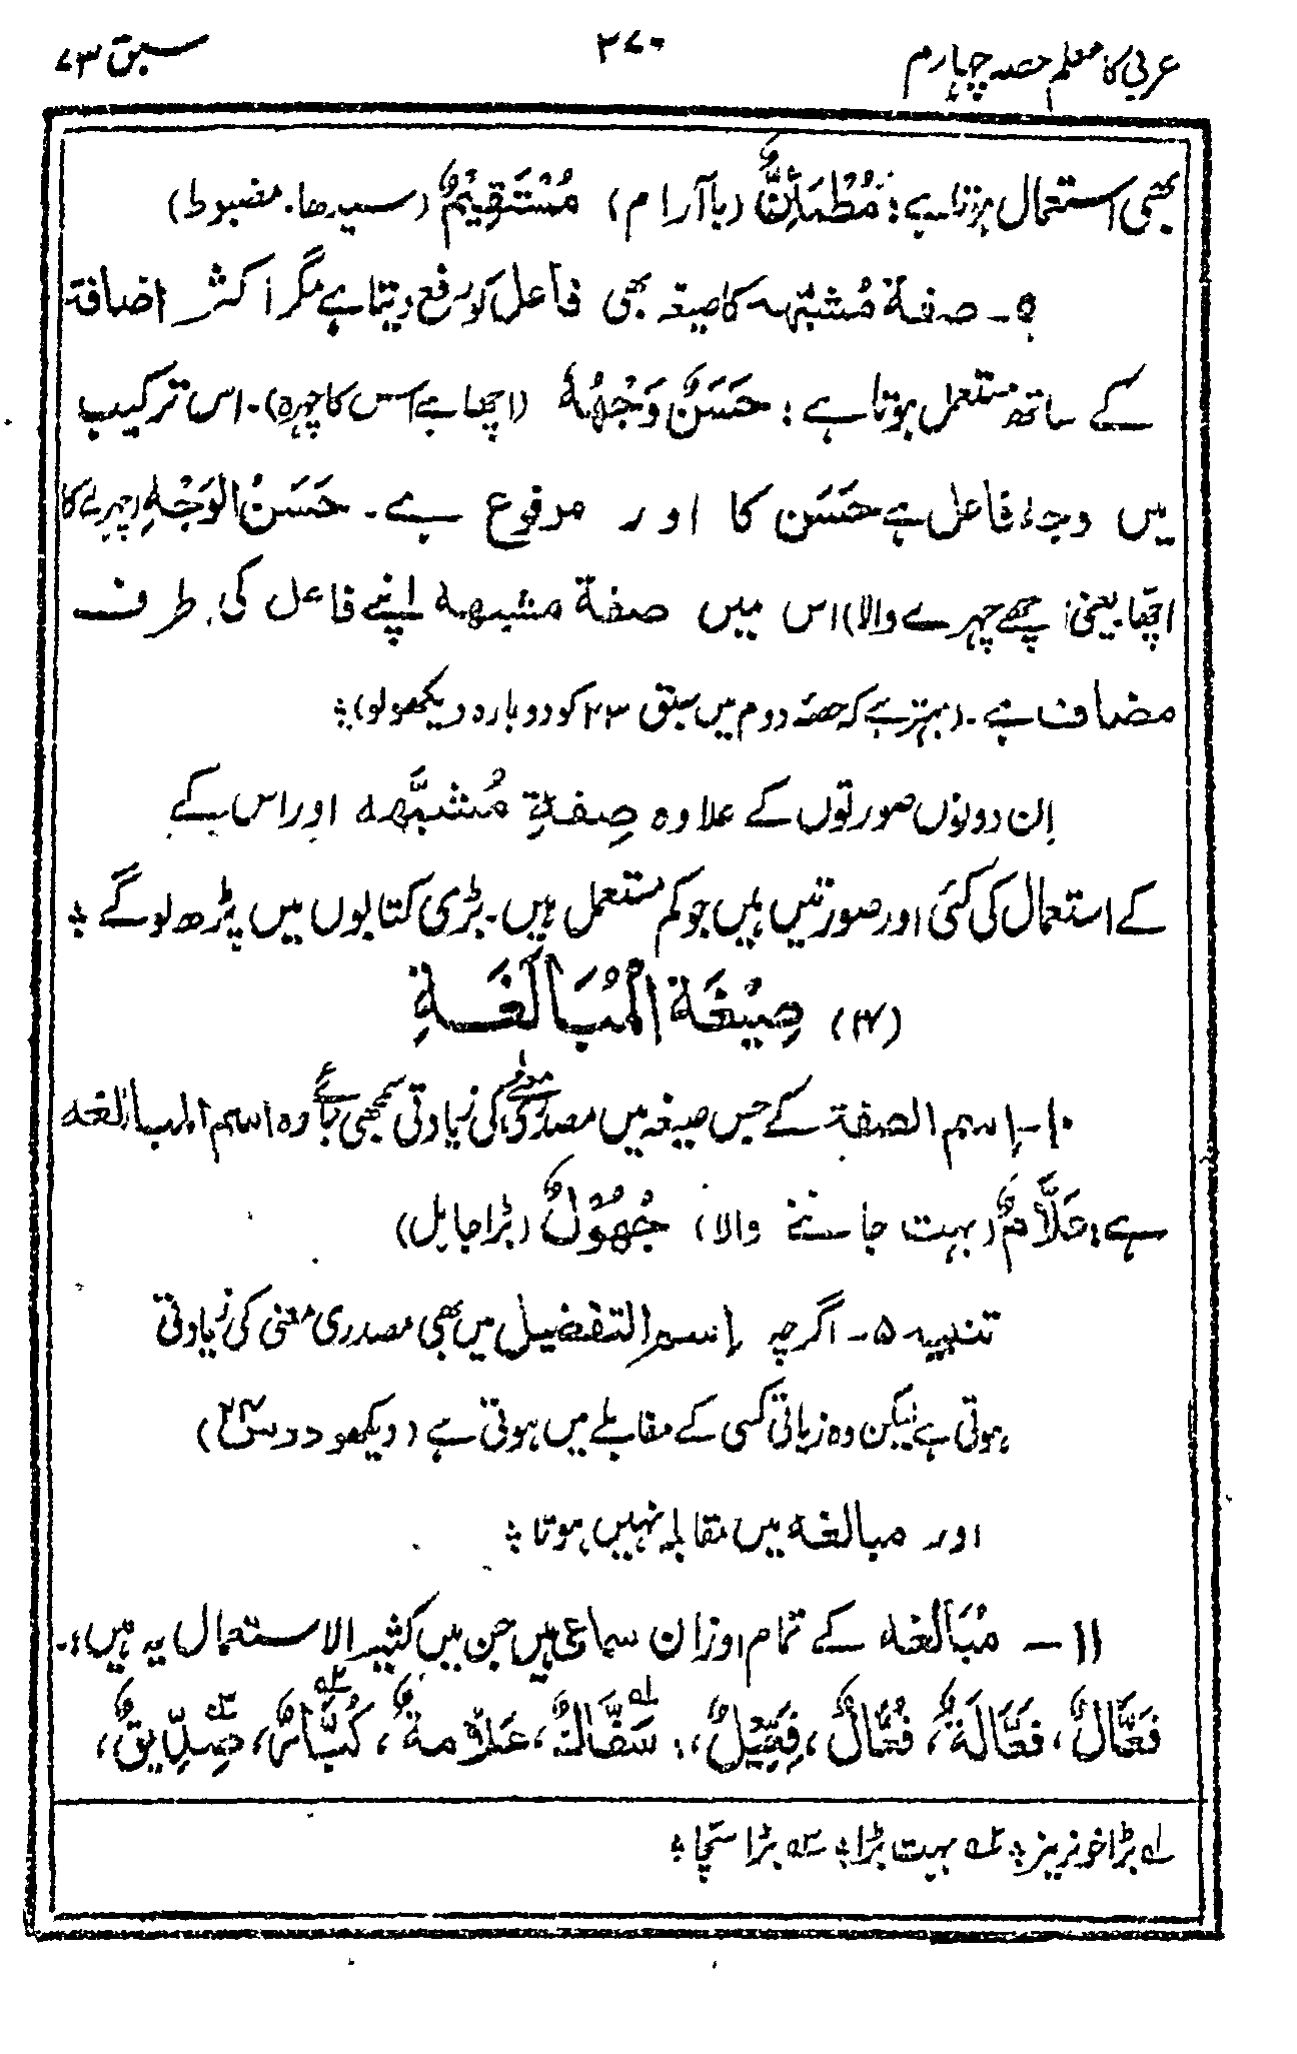 عربی کا معلم حصہ چہارم ۲۷۰ سبق ۷۳
بھی استعمال ہوتا ہے: مُطْمَئِنٌّ (باآرام) مُسْتَقِيْمٌ (سیدھا۔ مضبوط)
۹۔ صفة مُشبَّهه کا صیغہ بھی فاعل کو رفع دیتا ہے مگر اکثر اضافة
کے ساتھ مستعمل ہوتا ہے: حَسَنٌ وَجْهُهٗ (اچھا ہے اس کا چہرہ)۔ اس ترکیب
میں وجہ فاعل ہے حَسَن کا اور مرفوع ہے۔ حَسَنُ الوَجْهِ (چہرے کا
اچھا یعنی اچھے چہرے والا) اس میں صفة مشبهه اپنے فاعل کی طرف
مضاف ہے۔ (بہتر ہے کہ حصّہ دوم میں سبق ۲۳ کو دوبارہ دیکھ لو)؛
اِن دونوں صورتوں کے علاوہ صِفةِ مُشبَّهه اور اس کے
کے استعمال کی کئی اور صورتیں ہیں جو کم مستعمل ہیں۔ بڑی کتابوں میں پڑھ لوگے؛
(۳) صِيْغَةُ الْمُبَالَغَةِ
۱۰۔ اسم الصفة کے جس صیغہ میں مصدری معنے کی زیادتی سمجھی جائے وہ اسم المبالغہ
ہے: عَلَّامٌ (بہت جاننے والا) جُهُوْلٌ (بڑا جاہل)
تنبیہ ۵۔ اگرچہ اسم التفضیل میں بھی مصدری معنی کی زیادتی
ہوتی ہے لیکن وہ زیاتی کسی کے مقابلے میں ہوتی ہے (دیکھو درس ۲۴)
اور مبالغہ میں مقابلہ نہیں ہوتا؛
۱۱۔ مُبَالَغه کے تمام اوزان سماعی ہیں جن میں کثیر الاستعمال یہ ہیں:۔
فَعَّالٌ، فَعَّالَةٌ، فُعَّالٌ، فِعِّيْلٌ،: سَفَّاكٌ لہ، عَلَّامةٌ، كُبَّارٌ ۲ہ، صِدِّيقٌ ۳ہ،
لہ بڑا خونریز؛ ۲ہ بہت بڑا؛ ۳ہ بڑا سچّا؛